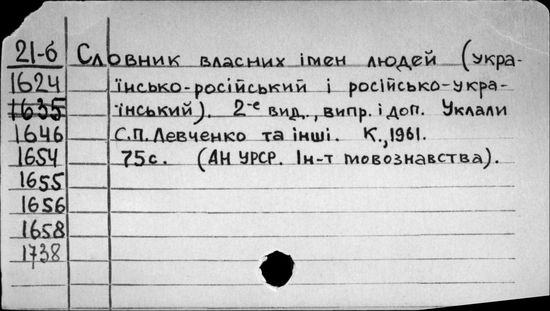 21-б Словник власних імен людей (укра-
1624 їнсько-російський і російсько-укра-
1635 їнський). 2-е вид., випр. і доп. Уклали
1646 С.П. Левченко та інші. К., 1961.
1654 75 с. (АН УРСР. Ін-т мовознавства).
1655
1656
1658
1738